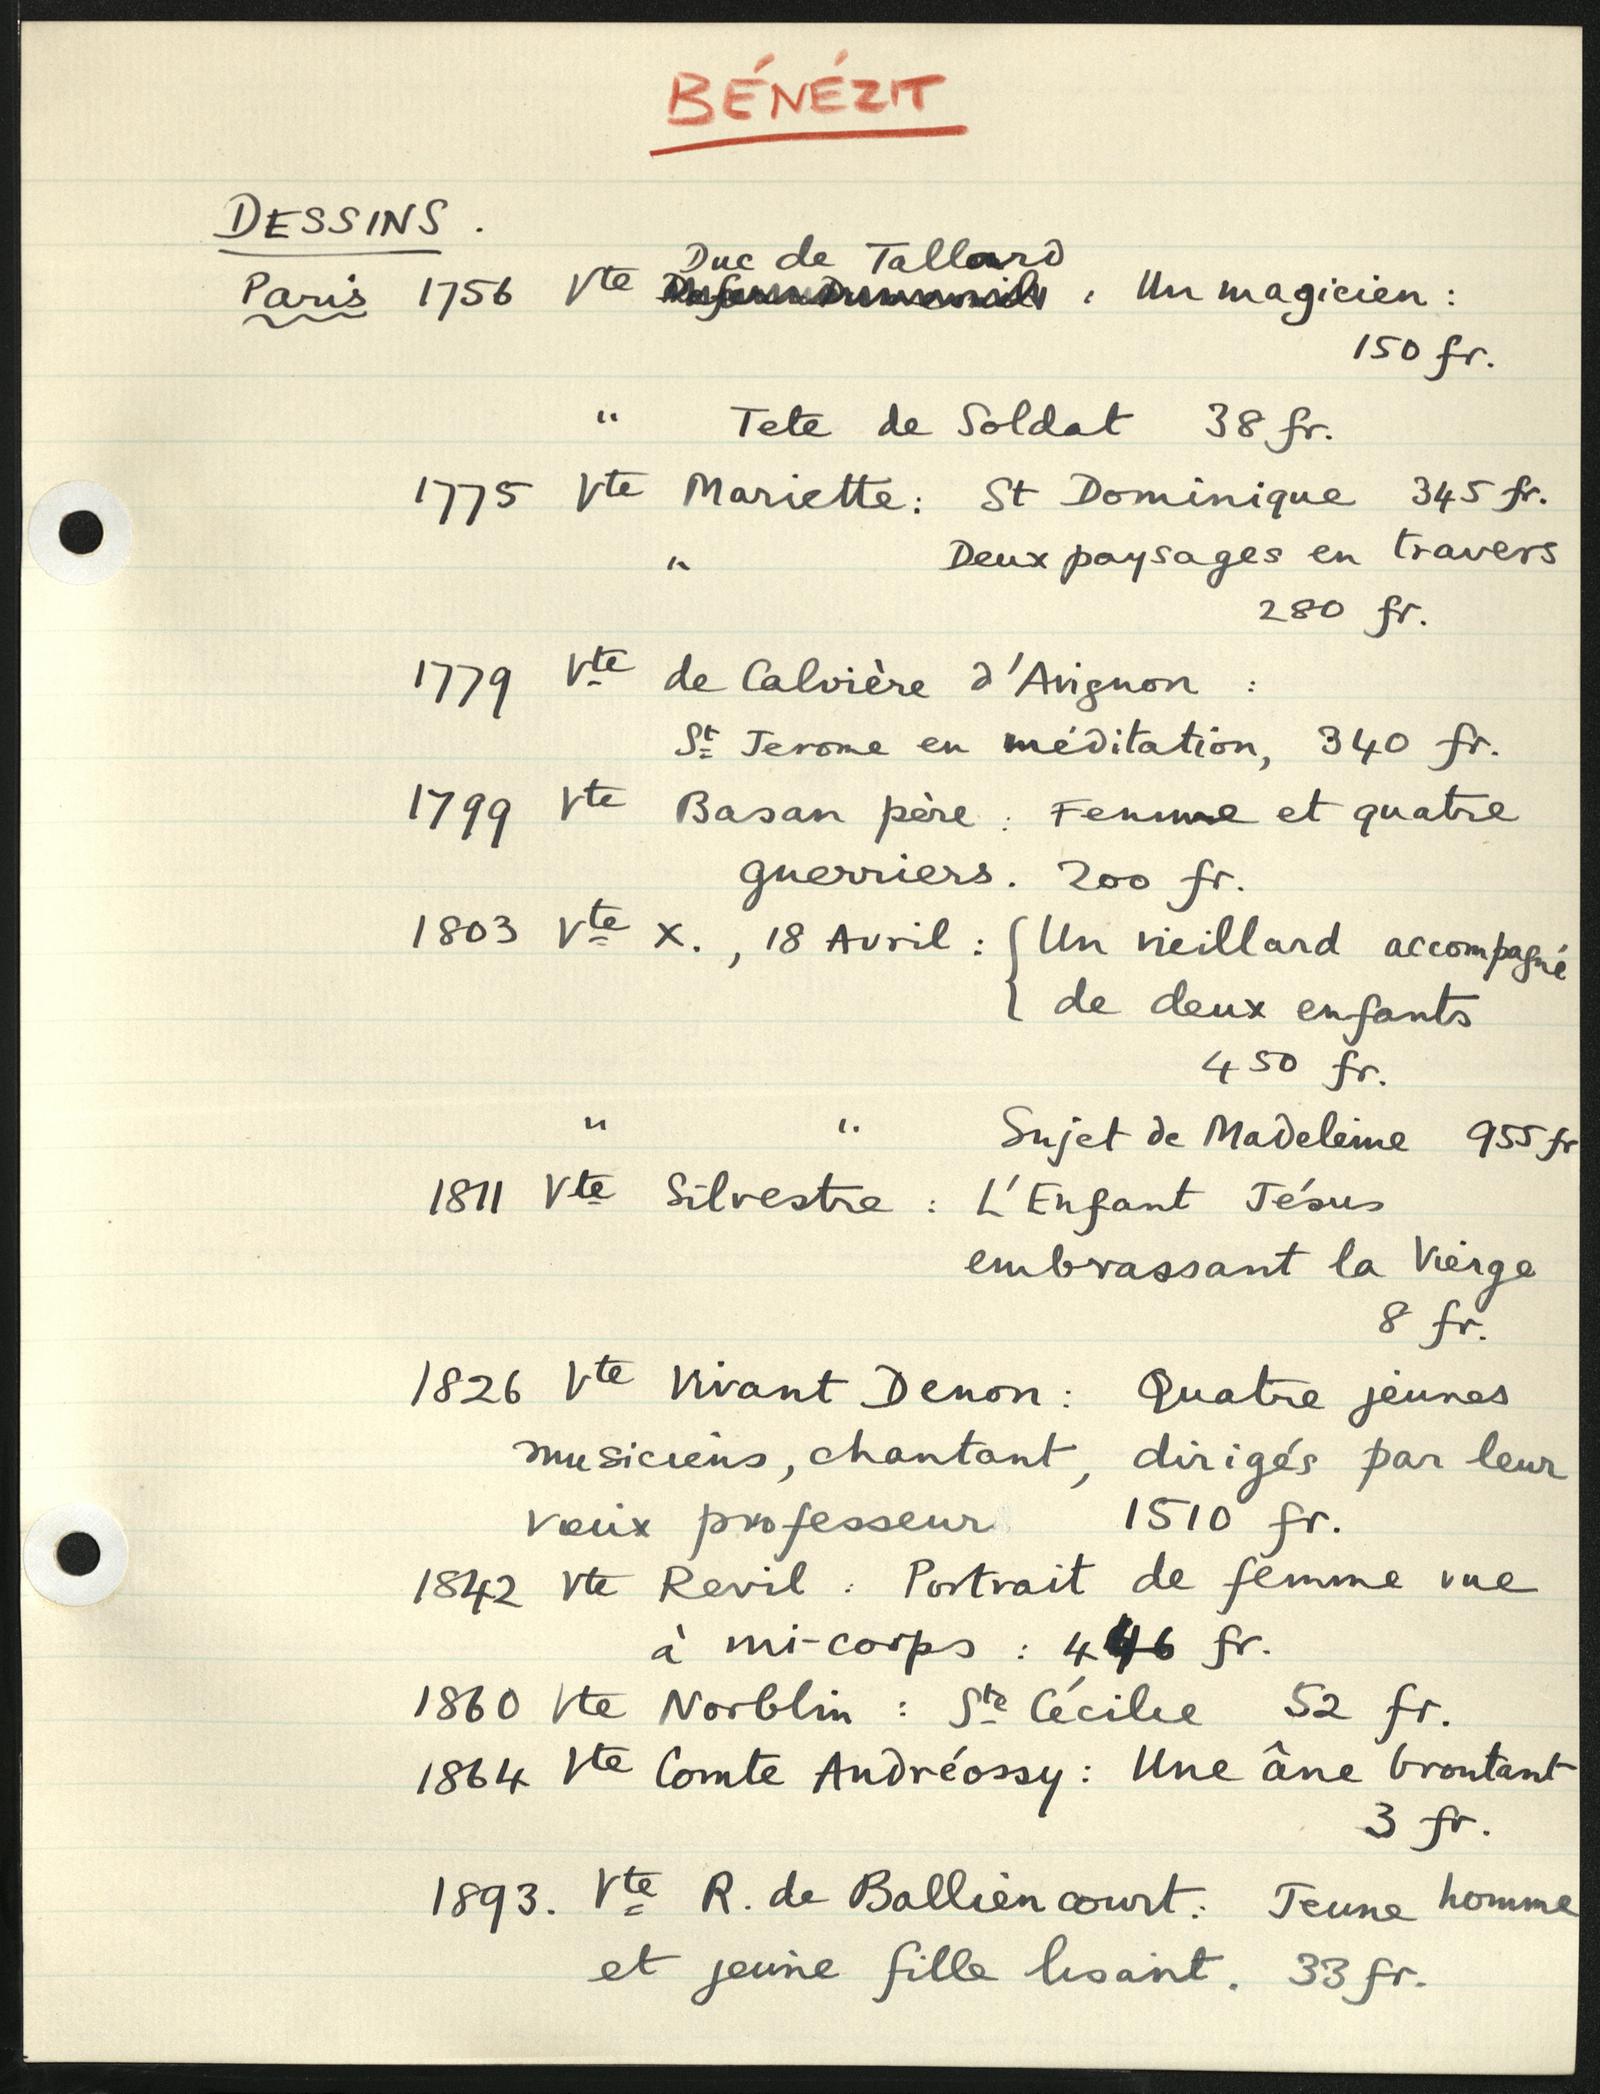 BÉNÉZIT
DESSINS.
Duc de Tallard
Paris 1756 Vte , Un magicien :
150 fr.
" Tete de Soldat 38 fr.
1775 Vte Mariette : St Dominique 345 fr.
" Deux paysages en travers
280 fr.
1779 Vte de Calvière d'Avignon :
St Jerome en méditation, 340 fr.
1799 Vte Basan père : Femme et quatre
guerriers. 200 fr.
1803 Vte X., 18 Avril : { Un vieillard accompagné
de deux enfants
450 fr.
" " Sujet de Madeleine 955 fr
1811 Vte Silvestre : L'Enfant Jésus
embrassant la Vierge
8 fr.
1826 Vte Vivant Denon : Quatre jeunes
musiciens, chantant, dirigés par leur
vieux professeur 1510 fr.
1842 Vte Revil : Portrait de femme vue
à mi-corps : 446 fr.
1860 Vte Norblin : Ste Cécile 52 fr.
1864 Vte Comte Andréossy : Une âne broutant
3 fr.
1893. Vte R. de Balliencourt : Jeune homme
et jeune fille lisant. 33 fr.